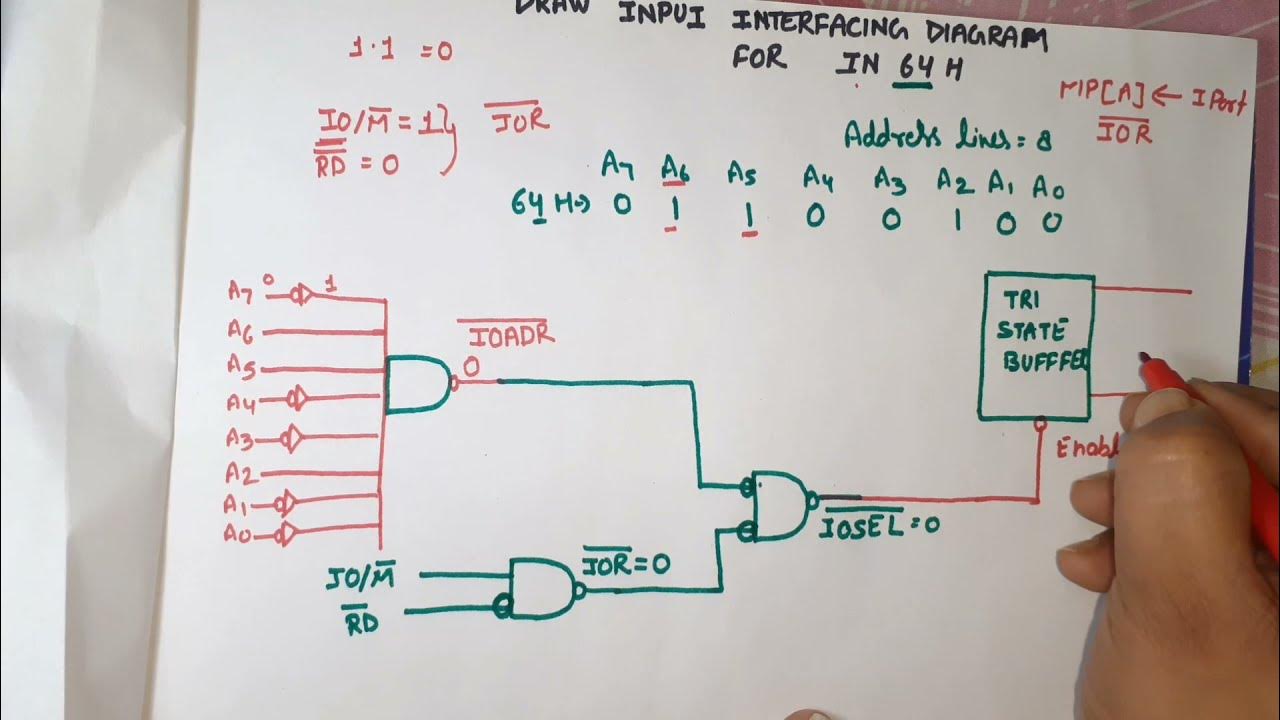 DRAW INPUT INTERFACING DIAGRAM
FOR IN 64 H
1·1 = 0
IO/M̅ = 1} I̅O̅R̅
R̅D̅ = 0
MP[A] ← I Port
I̅O̅R̅
Address lines = 8
A7 A6 A5 A4 A3 A2 A1 A0
64 H→ 0 1 1 0 0 1 0 0
A7 0 1
A6
A5
A4
A3
A2
A1
A0
I̅O̅A̅D̅R̅
0
TRI
STATE
BUFFFER
Enabl
I̅O̅S̅E̅L̅ = 0
IO/M̅
R̅D̅
I̅O̅R̅ = 0